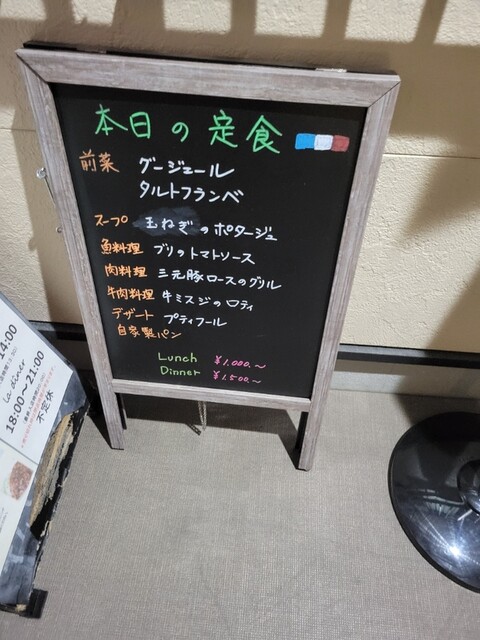 本日の定食
前菜 グージェール
タルトフランベ
スープ 玉ねぎのポタージュ
魚料理 ブリのトマトソース
肉料理 三元豚ロースのグリル
牛肉料理 牛ミスジのロティ
デザート プティフール
自家製パン
Lunch ¥1,000.~
Dinner ¥1,500.~
14:00
18:00~21:00
不定休